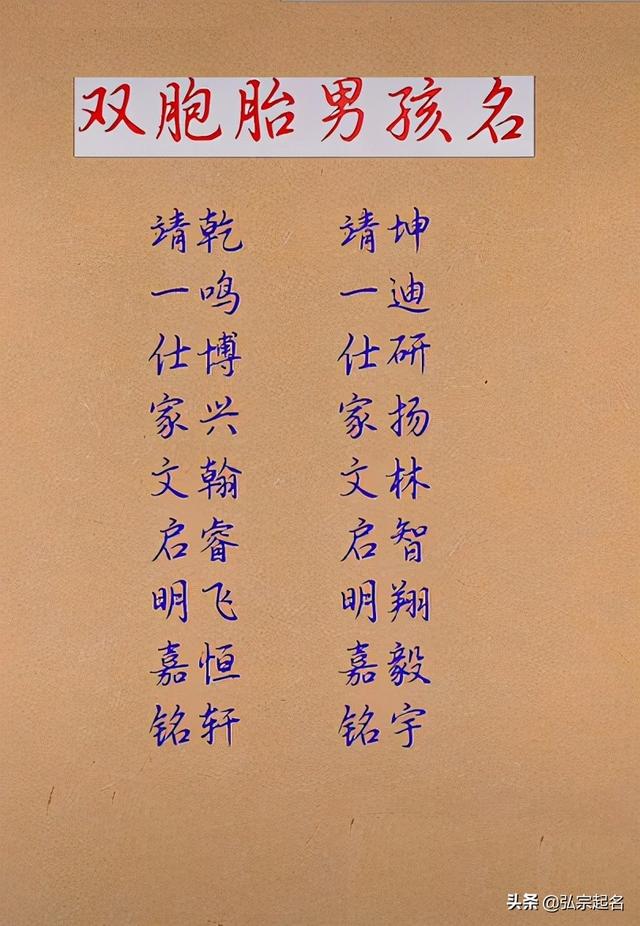 双胞胎男孩名
靖乾 靖坤
一鸣 一迪
仕博 仕研
家兴 家扬
文翰 文林
启睿 启智
明飞 明翔
嘉恒 嘉毅
铭轩 铭宇
头条 @弘宗起名